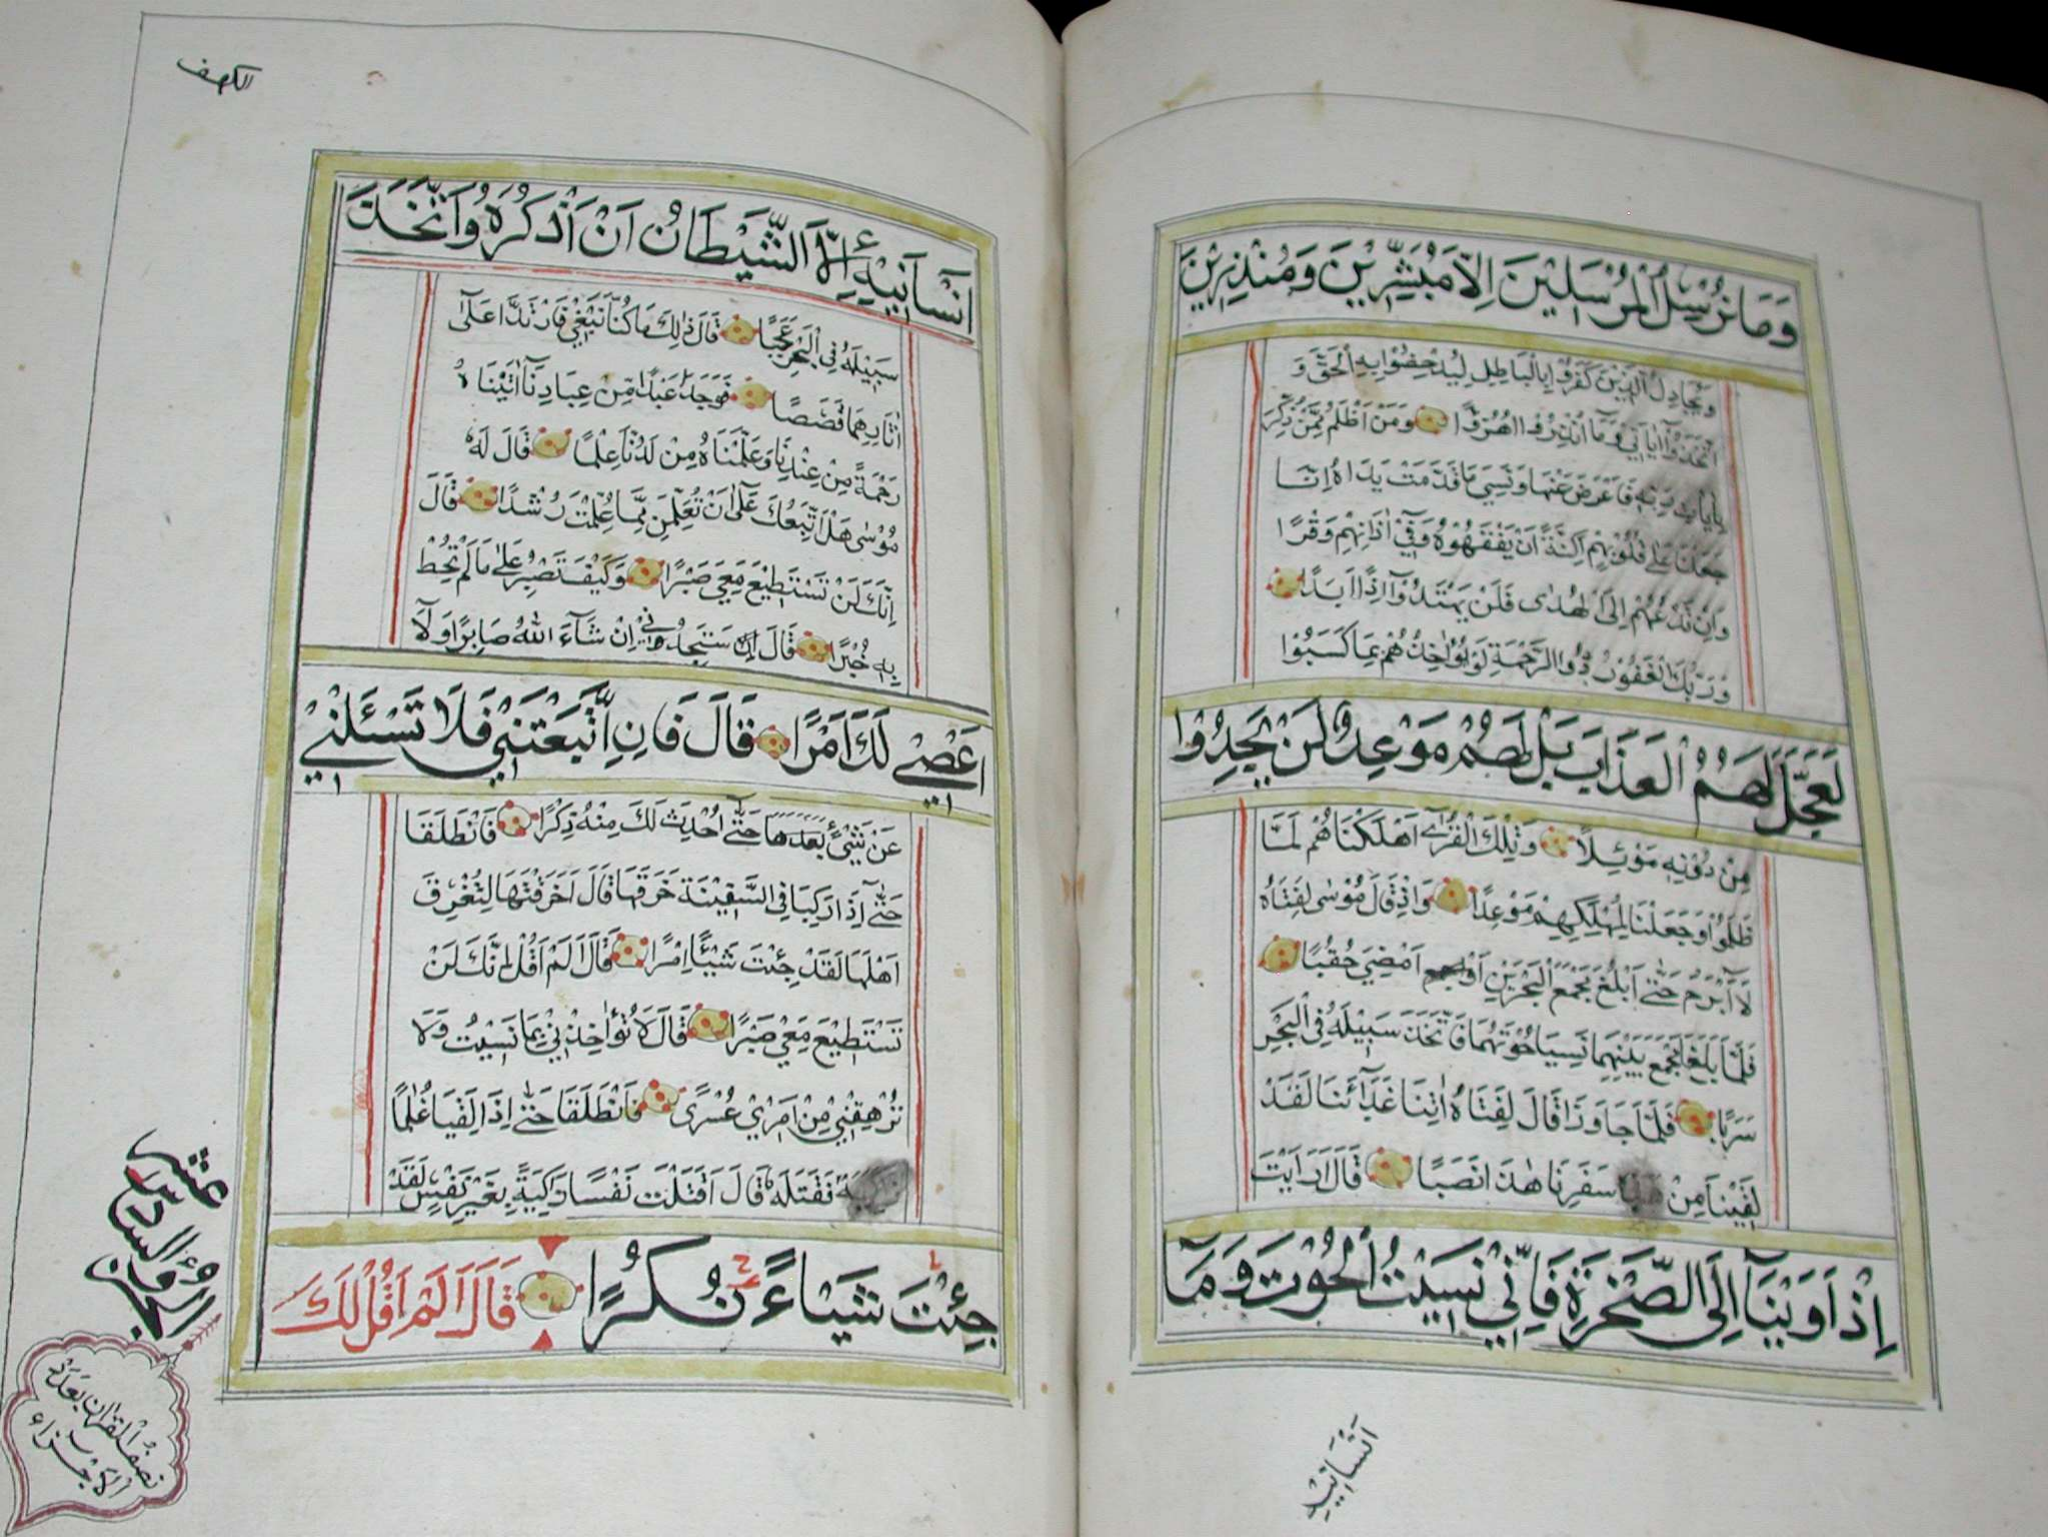 وَمَا نُرْسِلُ الْمُرْسَلِيْنَ اِلَّا مُبَشِّرِيْنَ وَمُنْذِرِيْنَ
وَيُجَادِلُ الَّذِيْنَ كَفَرُوْا بِالْبَاطِلِ لِيُدْحِضُوْا بِهِ الْحَقَّ وَ
اتَّخَذُوْٓا اٰيَاتِيْ وَمَآ اُنْذِرُوْا هُزُوًا وَمَنْ اَظْلَمُ مِمَّنْ ذُكِّرَ
بِاٰيَاتِ رَبِّهٖ فَاَعْرَضَ عَنْهَا وَنَسِيَ مَا قَدَّمَتْ يَدَاهُ اِنَّا
جَعَلْنَا عَلٰى قُلُوْبِهِمْ اَكِنَّةً اَنْ يَفْقَهُوْهُ وَفِيْٓ اٰذَانِهِمْ وَقْرًا
وَاِنْ تَدْعُهُمْ اِلَى الْهُدٰى فَلَنْ يَهْتَدُوْٓا اِذًا اَبَدًا
وَرَبُّكَ الْغَفُوْرُ ذُو الرَّحْمَةِ لَوْ يُؤَاخِذُهُمْ بِمَا كَسَبُوْا
لَعَجَّلَ لَهُمُ الْعَذَابَ بَلْ لَهُمْ مَوْعِدٌ لَنْ يَجِدُوْا
مِنْ دُوْنِهٖ مَوْئِلًا وَتِلْكَ الْقُرٰٓى اَهْلَكْنَاهُمْ لَمَّا
ظَلَمُوْا وَجَعَلْنَا لِمَهْلِكِهِمْ مَوْعِدًا وَاِذْ قَالَ مُوْسٰى لِفَتَاهُ
لَآ اَبْرَحُ حَتّٰٓى اَبْلُغَ مَجْمَعَ الْبَحْرَيْنِ اَوْ اَمْضِيَ حُقُبًا
فَلَمَّا بَلَغَا مَجْمَعَ بَيْنِهِمَا نَسِيَا حُوْتَهُمَا فَاتَّخَذَ سَبِيْلَهٗ فِي الْبَحْرِ
سَرَبًا فَلَمَّا جَاوَزَا قَالَ لِفَتَاهُ اٰتِنَا غَدَآءَنَا لَقَدْ
لَقِيْنَا مِنْ سَفَرِنَا هٰذَا نَصَبًا قَالَ اَرَاَيْتَ
اِذْ اَوَيْنَآ اِلَى الصَّخْرَةِ فَاِنِّيْ نَسِيْتُ الْحُوْتَ وَمَآ
اَنْسَانِيْهُ
الكهف
اَنْسَآنِيْهُ اِلَّا الشَّيْطَانُ اَنْ اَذْكُرَهُ وَاتَّخَذَ
سَبِيْلَهٗ فِي الْبَحْرِ عَجَبًا قَالَ ذٰلِكَ مَا كُنَّا نَبْغِيْ فَارْتَدَّا عَلٰٓى
اٰثَارِهِمَا قَصَصًا فَوَجَدَا عَبْدًا مِنْ عِبَادِنَآ اٰتَيْنَاهُ
رَحْمَةً مِنْ عِنْدِنَا وَعَلَّمْنَاهُ مِنْ لَدُنَّا عِلْمًا قَالَ لَهٗ
مُوْسٰى هَلْ اَتَّبِعُكَ عَلٰٓى اَنْ تُعَلِّمَنِ مِمَّا عُلِّمْتَ رُشْدًا قَالَ
اِنَّكَ لَنْ تَسْتَطِيْعَ مَعِيَ صَبْرًا وَكَيْفَ تَصْبِرُ عَلٰى مَا لَمْ تُحِطْ
بِهٖ خُبْرًا قَالَ سَتَجِدُنِيْ اِنْ شَآءَ اللّٰهُ صَابِرًا وَلَآ
اَعْصِيْ لَكَ اَمْرًا قَالَ فَاِنِ اتَّبَعْتَنِيْ فَلَا تَسْـَٔلْنِيْ
عَنْ شَيْءٍ بَعْدَهَا حَتّٰٓى اُحْدِثَ لَكَ مِنْهُ ذِكْرًا فَانْطَلَقَا
حَتّٰٓى اِذَا رَكِبَا فِي السَّفِيْنَةِ خَرَقَهَا قَالَ اَخَرَقْتَهَا لِتُغْرِقَ
اَهْلَهَا لَقَدْ جِئْتَ شَيْـًٔا اِمْرًا قَالَ اَلَمْ اَقُلْ اِنَّكَ لَنْ
تَسْتَطِيْعَ مَعِيَ صَبْرًا قَالَ لَا تُؤَاخِذْنِيْ بِمَا نَسِيْتُ وَلَا
تُرْهِقْنِيْ مِنْ اَمْرِيْ عُسْرًى فَانْطَلَقَا حَتّٰٓى اِذَا لَقِيَا غُلٰمًا
فَقَتَلَهٗ قَالَ اَقَتَلْتَ نَفْسًا زَكِيَّةً بِغَيْرِ نَفْسٍ لَقَدْ
جِئْتَ شَيْاءً نُكْرًا قَالَ اَلَمْ اَقُلْ لَكَ
الجزؤ السادس عشر
نصف القرآن بعدد
الاجزاء